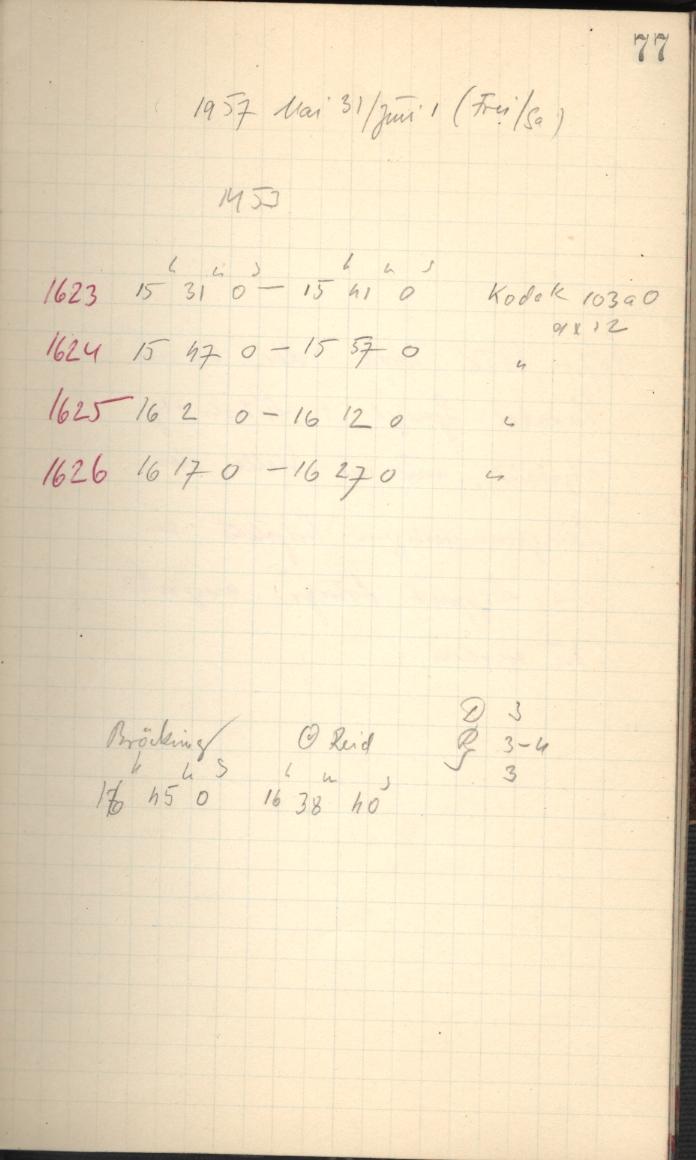 77
1957 Mai 31/Juni 1 (Frei/Sa)
M 53
h m s h m s
1623 15 31 0 – 15 41 0 Kodak 103aO
9x12
1624 15 47 0 – 15 57 0 "
1625 16 2 0 – 16 12 0 "
1626 16 17 0 – 16 27 0 "
3
Bröcking Reid R 3-4
h m s h m s S 3
45 0 16 38 40